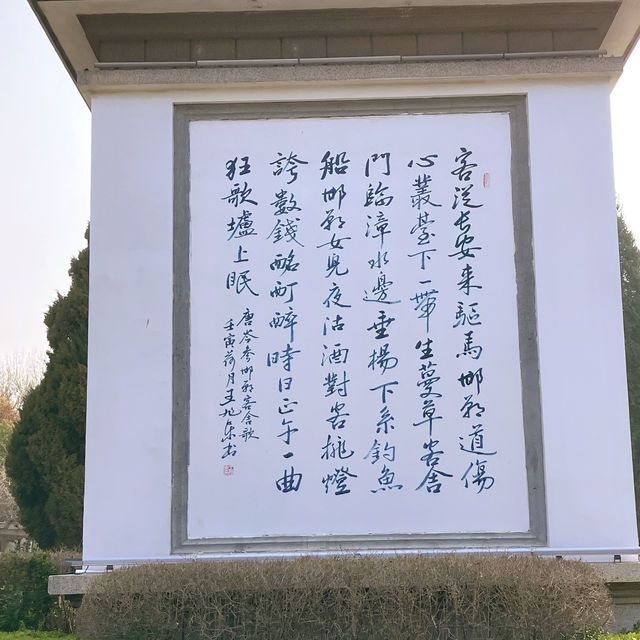 客從長安来驅馬邯鄲道傷
心叢臺下一帶生蔓草客舍
門臨漳水邊垂楊下系釣魚
船邯鄲女兒夜沽酒對客挑燈
誇數錢酩酊醉時日正午一曲
狂歌壚上眠
唐岑參邯鄲客舍歌
壬寅荷月王旭東书